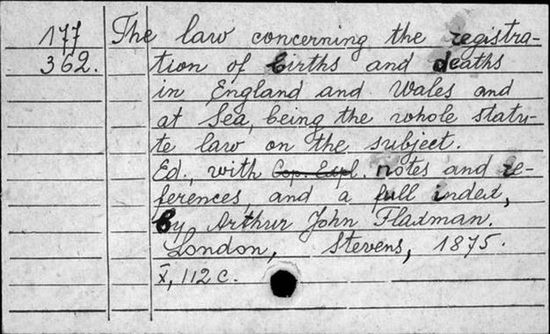 177 The law concerning the registra-
362. tion of births and deaths
in England and Wales and
at Sea, being the whole statu-
te law on the subject.
Ed., with notes and re-
ferences, and a full index,
by Arthur John Flaxman.
London, Stevens, 1875.
X, 112 c.